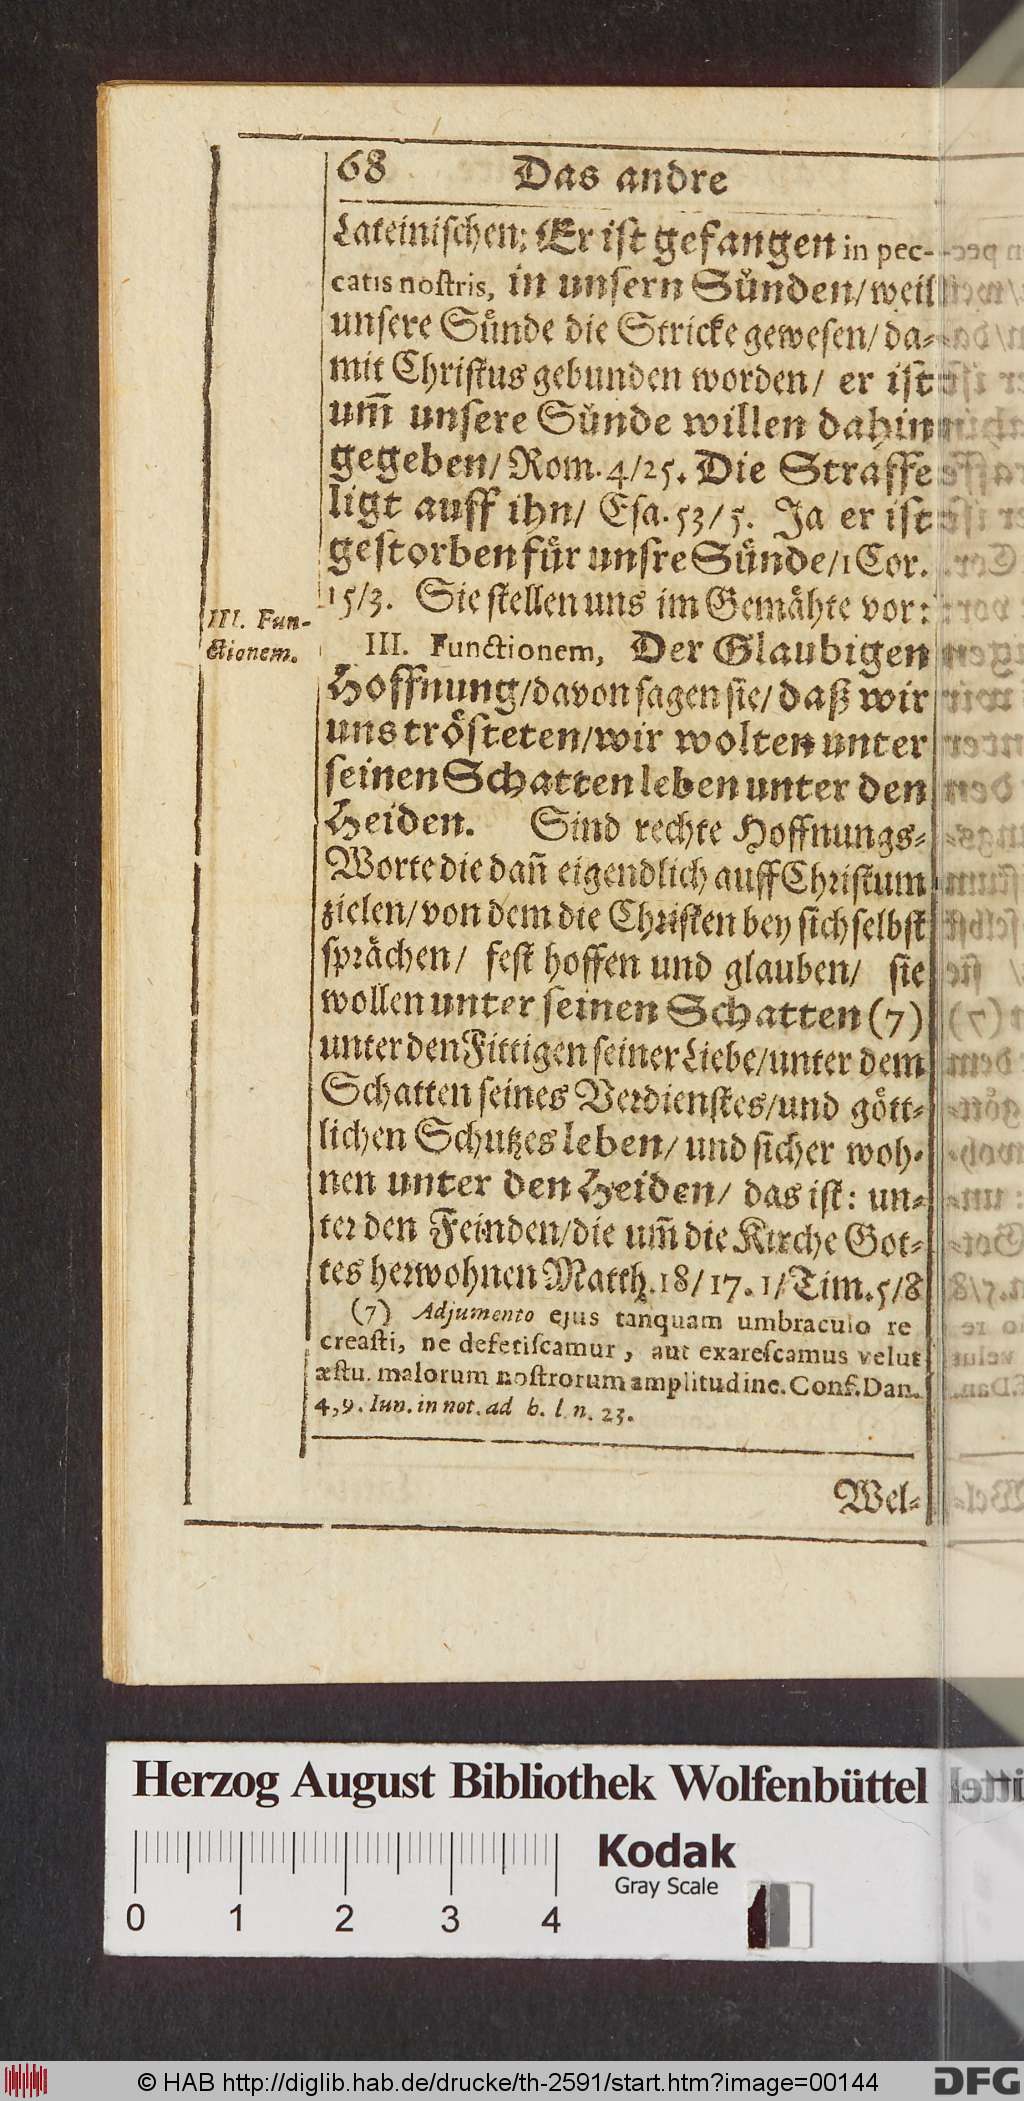 68 Das andre
Lateinischen: Er ist gefangen in pec-
catis nostris, in unsern Sünden/ weil
unsere Sünde die Stricke gewesen/ da-
mit Christus gebunden worden/ er ist
um̃ unsere Sünde willen dahin
gegeben/ Rom. 4/25. Die Straffe
ligt auff ihn/ Esa. 53/5. Ja er ist
gestorben für unsre Sünde/ 1 Cor.
15/3. Sie stellen uns im Gemählte vor:
III. Fun-
ctionem.
III. Functionem, Der Glaubigen
Hoffnung/ davon sagen sie/ daß wir
uns trösteten/ wir wolten unter
seinen Schatten leben unter den
Heiden. Sind rechte Hoffnungs-
Worte die dañ eigendlich auff Christum
zielen/ von dem die Christen bey sich selbst
sprächen/ fest hoffen und glauben/ sie
wollen unter seinen Schatten (7)
unter den Fittigen seiner Liebe/ unter dem
Schatten seines Verdienstes/ und gött-
lichen Schutzes leben/ und sicher woh-
nen unter den Heiden/ das ist: un-
ter den Feinden/ die um̃ die Kirche Got-
tes herwohnen Matth. 18/17. 1/Tim. 5/8
(7) Adjumento ejus tanquam umbraculo re
creasti, ne defetiscamur, aut exarescamus velut
æstu. malorum nostrorum amplitudine. Conf. Dan.
4,9. Iun. in not. ad h. l. n. 23.
Wel-
Herzog August Bibliothek Wolfenbüttel
0 1 2 3 4
Kodak
Gray Scale
© HAB http://diglib.hab.de/drucke/th-2591/start.htm?image=00144
DFG